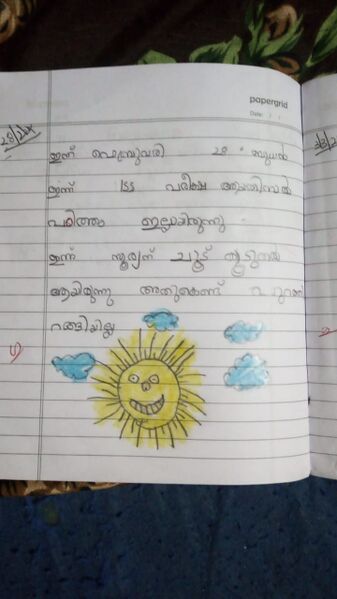 papergrid
Date: / /
ഇന്ന് ഫെബ്രുവരി 28 ബുധൻ
ഇന്ന് ISS പരീക്ഷ ആയതിനാൽ
പഠിത്തം ഇല്ലായിരുന്നു
ഇന്ന് സൂര്യന് ചൂട് കൂടുതൽ
ആയിരുന്നു അതുകൊണ്ട്
റങ്ങിയില്ല